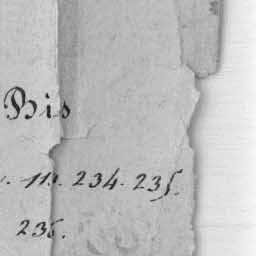 Bis
111. 234. 235.
236.